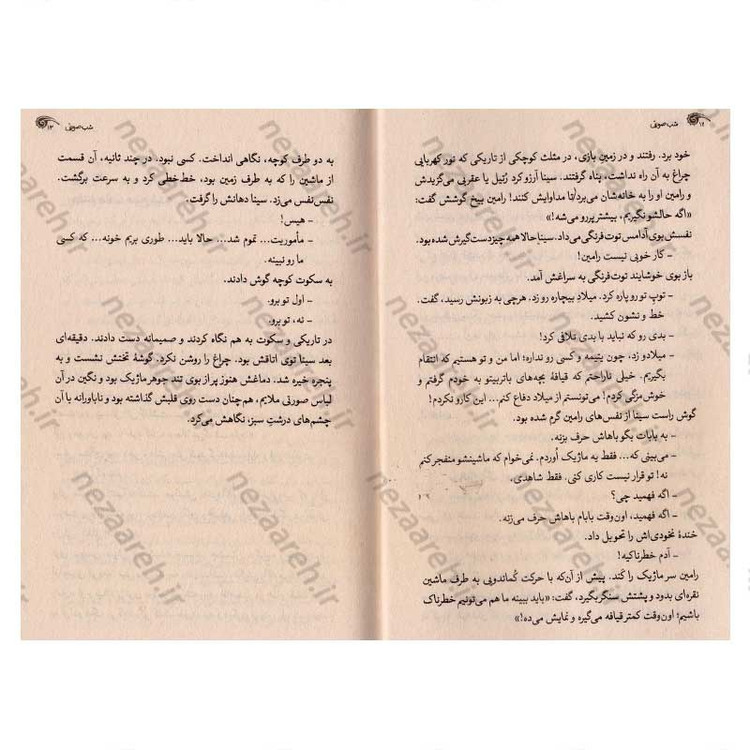 ۱۲ شب صورتی
خود برد. رفتند و در زمین بازی، در مثلث کوچکی از تاریکی که نور کهربایی
چراغ به آن راه نداشت، پناه گرفتند. سینا آرزو کرد رُتیل یا عقربی می‌گزیدش
و رامین او را به خانه‌شان می‌برد تا مداوایش کنند! رامین بیخ گوشش گفت:
«اگه حالشو نگیریم، بیشتر پررو می‌شه!»
نفسش بوی آدامس توت‌فرنگی می‌داد. سینا حالا همه چیز دست‌گیرش شده بود.
- کار خوبی نیست رامین!
باز بوی خوشایند توت‌فرنگی به سراغش آمد.
- توپ تو رو پاره کرد. میلادِ بیچاره رو زد. هرچی به زبونش رسید، گفت.
خط و نشون کشید.
- بدی رو که نباید با بدی تلافی کرد!
- میلادو زد، چون یتیمه و کسی رو نداره؛ اما من و تو هستیم که انتقام
بگیریم. خیلی ناراحتم که قیافهٔ بچه‌های باتربیتو به خودم گرفتم و
خوش‌مزگی کردم! می‌تونستم از میلاد دفاع کنم... این کارو نکردم!
گوش راست سینا از نفس‌های رامین گرم شده بود.
- به بابات بگو باهاش حرف بزنه.
- می‌بینی که... فقط یه ماژیک آوردم. نمی‌خوام که ماشینشو منفجر کنم
نه! تو قرار نیست کاری کنی. فقط شاهدی.
- اگه فهمید چی؟
- اگه فهمید، اون‌وقت بابام باهاش حرف می‌زنه.
خندهٔ نخودی‌اش را تحویل داد.
- آدم خطرناکیه!
رامین سر ماژیک را کَند. پیش از آن‌که با حرکت کُماندویی به طرف ماشین
نقره‌ای بدود و پشتش سنگر بگیرد، گفت: «باید ببینه ما هم می‌تونیم خطرناک
باشیم؛ اون‌وقت کمتر قیافه می‌گیره و نمایش می‌ده!»
شب صورتی ۱۳
به دو طرف کوچه، نگاهی انداخت. کسی نبود. در چند ثانیه، آن قسمت
از ماشین را که به طرف زمین بود، خط‌خطی کرد و به سرعت برگشت.
نفس‌نفس می‌زد. سینا دهانش را گرفت.
- هیس!
- مأموریت... تموم شد... حالا باید... طوری بریم خونه... که کسی
ما رو نبینه.
به سکوت کوچه گوش دادند.
- اول تو برو.
- نه، تو برو.
در تاریکی و سکوت به هم نگاه کردند و صمیمانه دست دادند. دقیقه‌ای
بعد سینا توی اتاقش بود. چراغ را روشن نکرد. گوشهٔ تختش نشست و به
پنجره خیره شد. دماغش هنوز پر از بوی تند جوهر ماژیک بود و نگین در آن
لباس صورتی ملایم، هم‌چنان دست روی قلبش گذاشته بود و ناباورانه با آن
چشم‌های درشتِ سبز، نگاهش می‌کرد.
nezaareh.ir